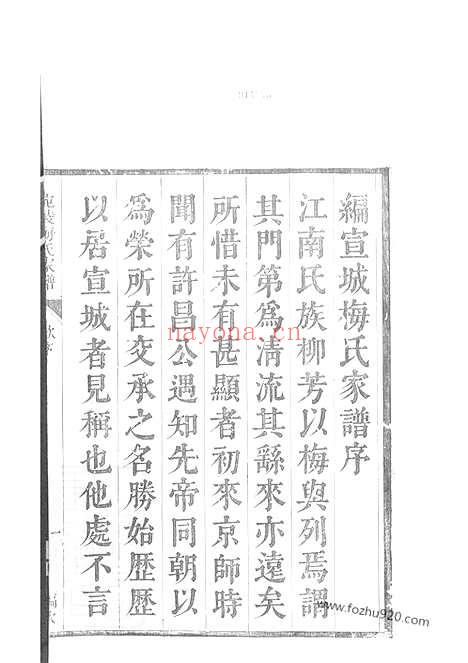 編宣城梅氏家譜序
江南氏族柳芳以梅與列焉謂
其門第為清流其繇來亦遠矣
所惜未有甚顯者初來京師時
聞有許昌公遇知先帝同朝以
為榮所在交承之名勝始歷歷
以居宣城者見稱也他處不言
nayona.cn
www.fozhu920.com